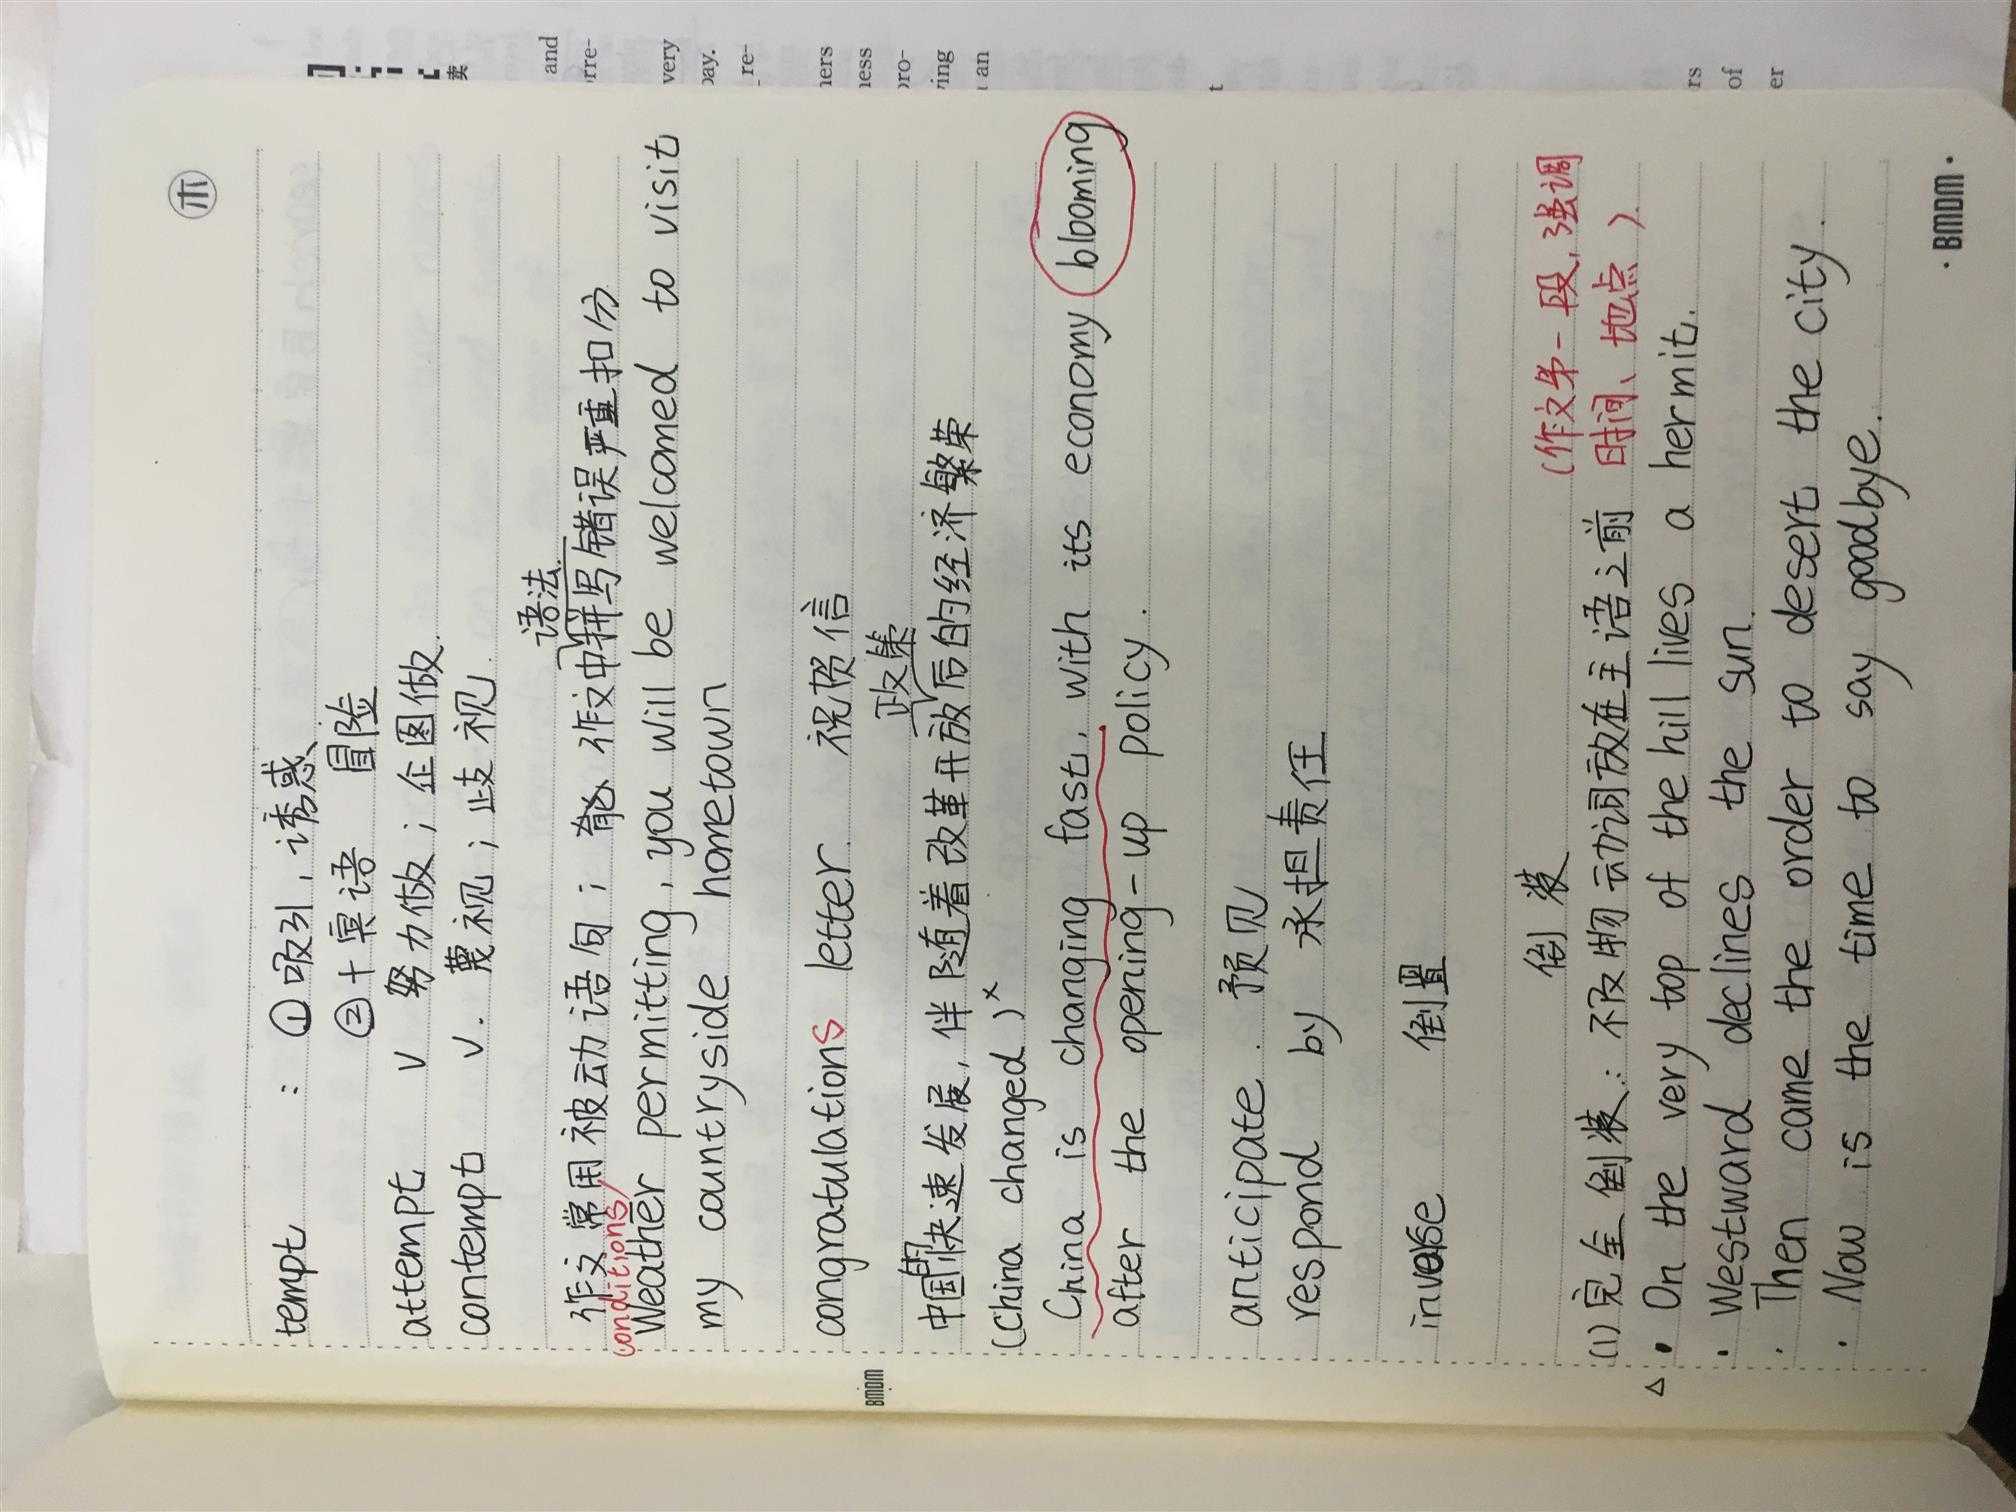 木
tempt : ①吸引,诱惑
②+宾语 冒险
attempt v 努力做;企图做
contempt v. 蔑视;歧视
语法
作文常用被动语句; 能 作文中拼写错误严重扣分
conditions
Weather permitting, you will be welcomed to visit
my countryside hometown
congratulations letter 祝贺信
政策
中国的快速发展,伴随着改革开放后的经济繁荣
(China changed)×
China is changing fast, with its economy blooming
after the opening-up policy.
anticipate 预见
respond by 承担责任
inverse 倒置
倒装 (作文第一段,强调
时间、地点)
(1)完全倒装:不及物动词放在主语之前
△ • On the very top of the hill lives a hermit.
• Westward declines the sun.
· Then came the order to desert the city.
· Now is the time to say goodbye.
BMDM
· BMDM ·
卖
and
rre-
very
pay.
re-
ners
ness
pro-
ving
an
t
rs
of
er